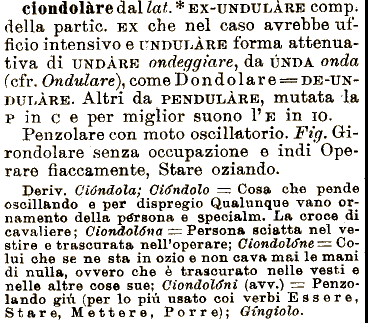 ciondolàre dal lat. * EX-UNDULÀRE comp.
della partic. EX che nel caso avrebbe uf-
ficio intensivo e UNDULÀRE forma attenua-
tiva di UNDÀRE ondeggiare, da ÙNDA onda
(cfr. Ondulare), come Dondolare = DE-UN-
DULÀRE. Altri da PENDULÀRE, mutata la
P in C e per miglior suono l'E in IO.
Penzolare con moto oscillatorio. Fig. Gi-
rondolare senza occupazione e indi Ope-
rare fiaccamente, Stare oziando.
Deriv. Cióndola; Cióndolo = Cosa che pende
oscillando e per dispregio Qualunque vano or-
namento della pérsona e specialm. La croce di
cavaliere; Ciondolóna = Persona sciatta nel ve-
stire e trascurata nell'operare; Ciondolóne = Co-
lui che se ne sta in ozio e non cava mai le mani
di nulla, ovvero che è trascurato nelle vesti e
nelle altre cose sue; Ciondolóni (avv.) = Penzo-
lando giú (per lo più usato coi verbi Essere,
Stare, Mettere, Porre); Gíngiolo.